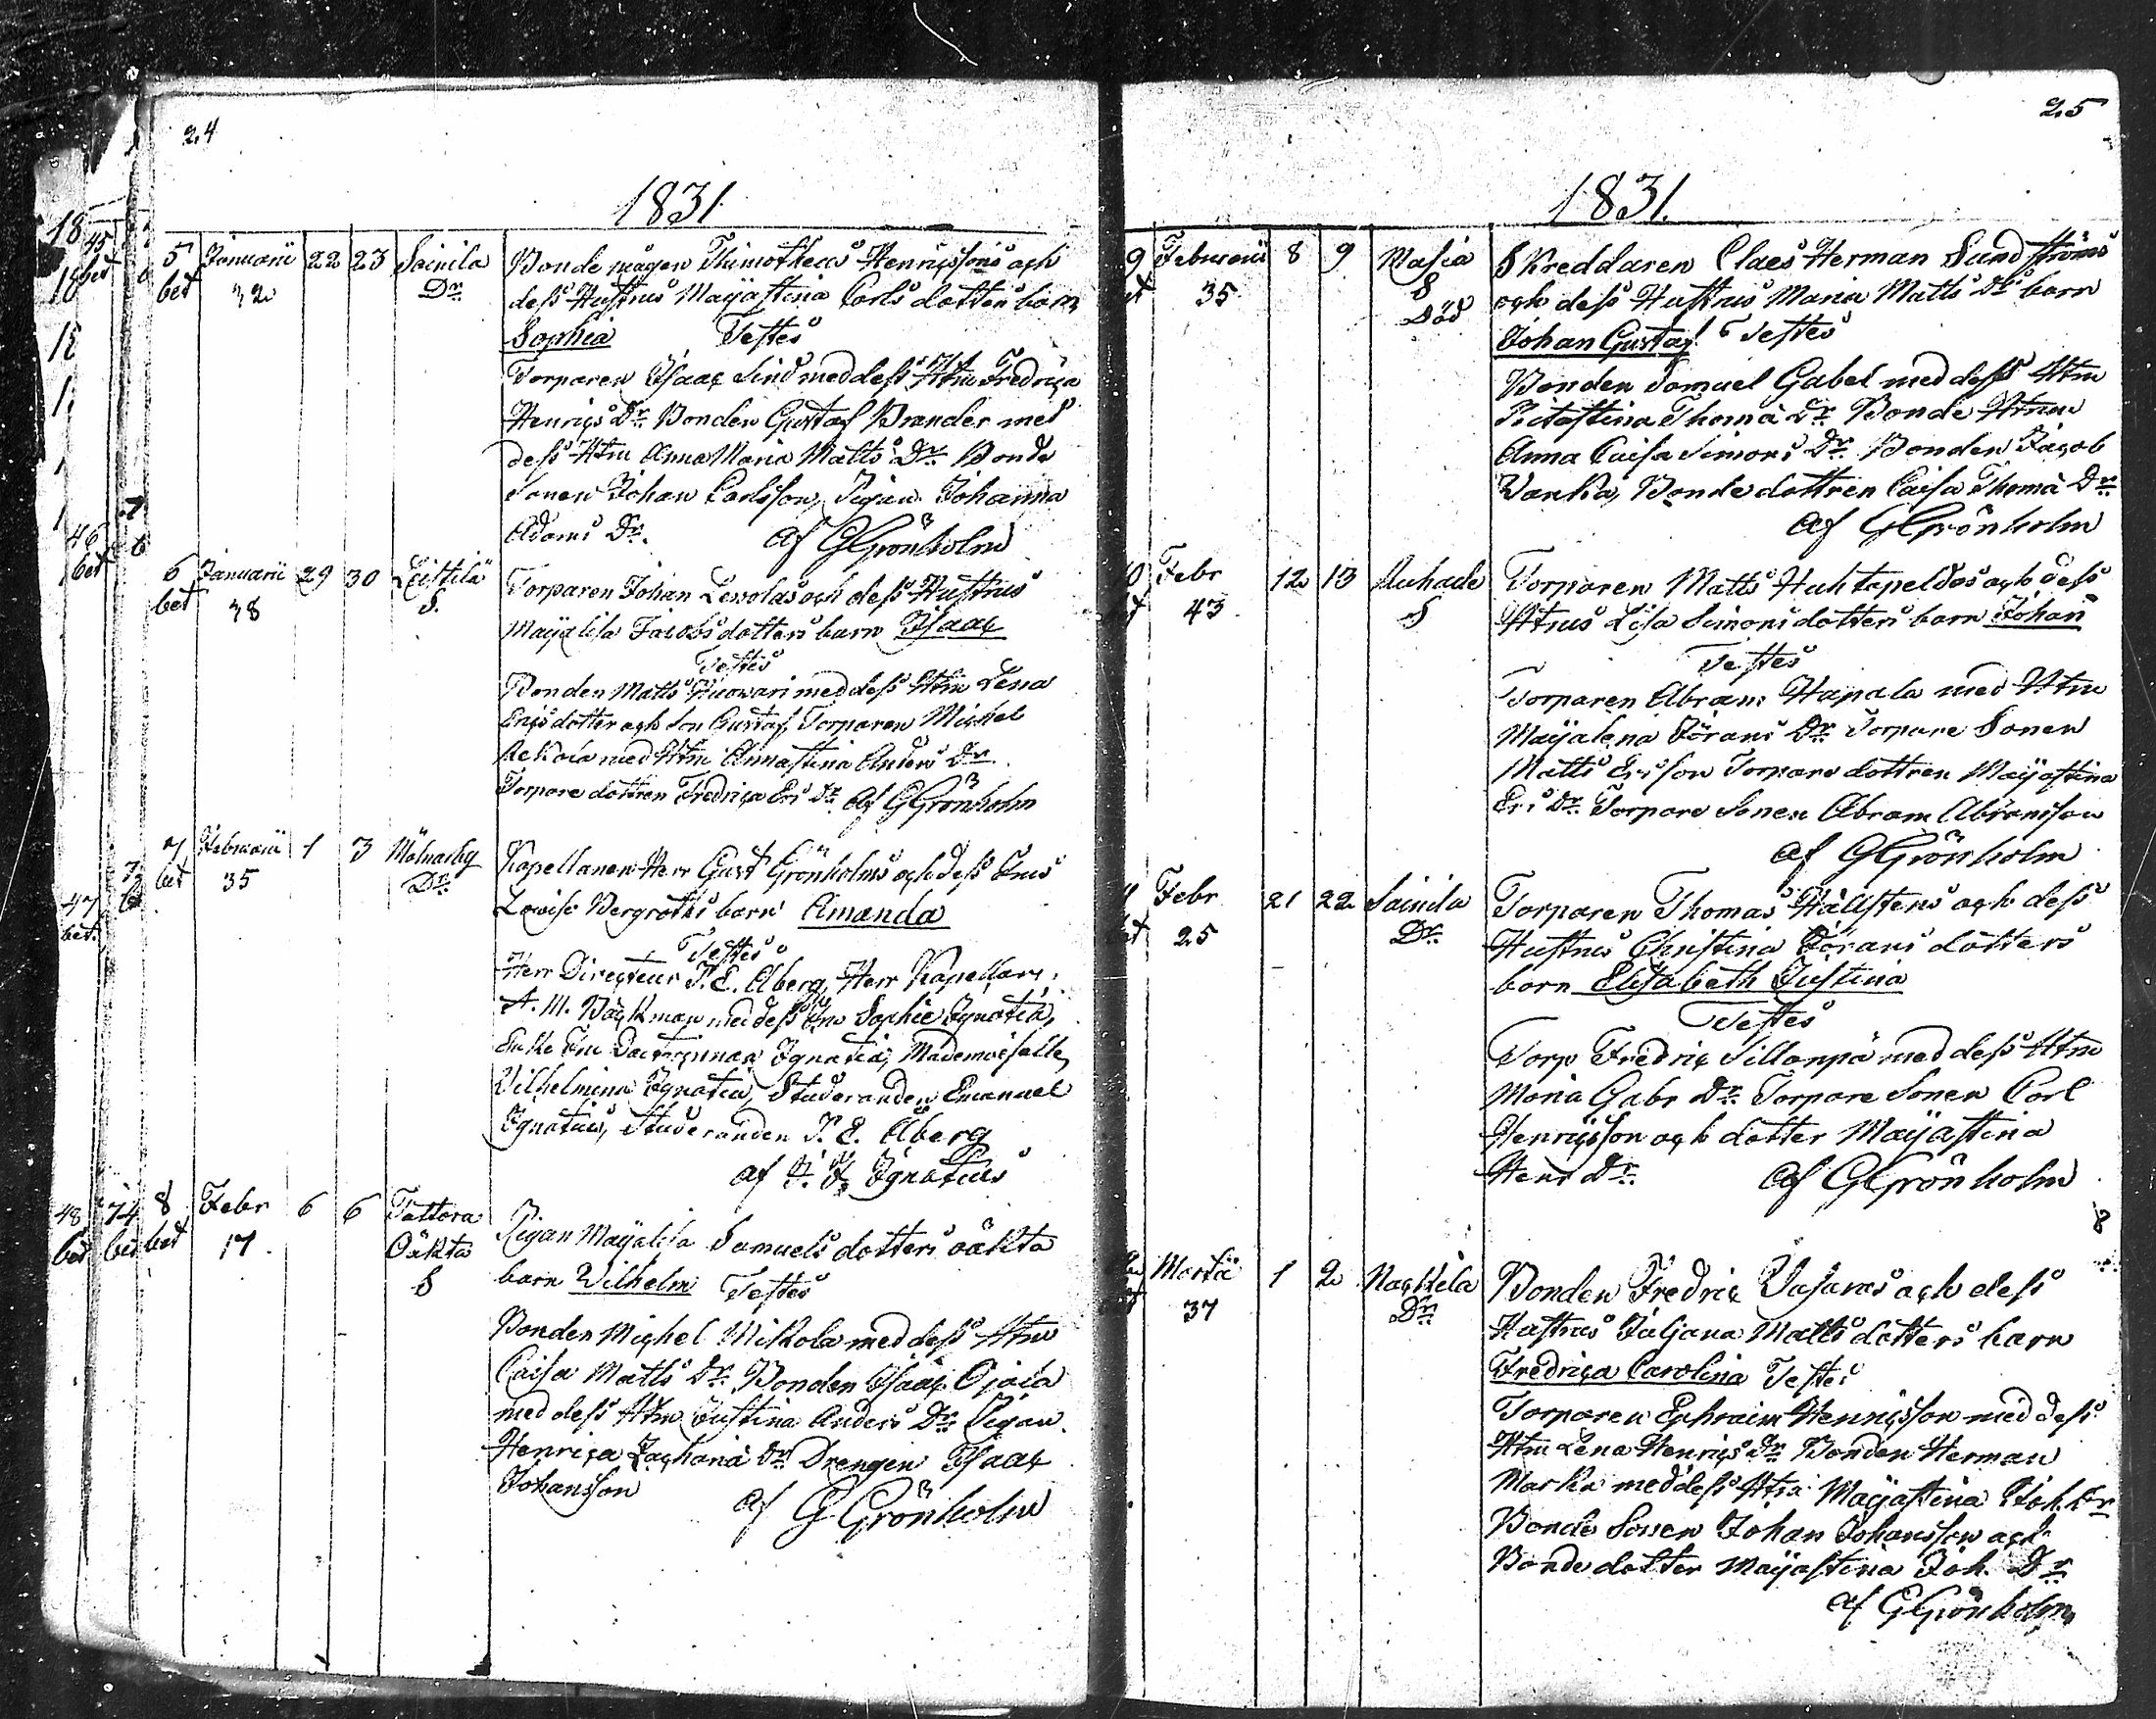 24
1831
5 Januarii 22 23 Sainila Bondemågen Thimotheus Henricssons och
bet 32 Dr dess Hustrus Majastina Carls dotters barn
Sophia Testes
Torparen Isaac Lind med dess Htru Fredrica
Henrics Dr Bonden Gustaf Brander med
dess Htru Anna Maria Matts Dr Bonde
Sonen Johan Carlsson, Pigan Johanna
Adams Dr. af GGrönholm
6 Januarii 29 30 Leistilä Torparen Johan Lewolas och dess Hustrus
bet 38 S. Majalisa Jacobs dotters barn Isaac
Testes
Bonden Matts Huowari med dess Htru Lena
Erics dotter och Son Gustaf, Torparen Michel
med Htru Annastina Anders Dr
Torpare dottren Fredrica Ers Dr af GGrönholm
7 Februarii 1 3 Kapellanen Herr Gust Grönholms och dess Frus
bet 35 Dr Lovise Bergroths barn Amanda
Testes
Herr Directeur J. E. Åberg, Herr Kapellan
A. M. Bäckman med dess Fru Sophie Ignatia,
Enke Fru Ignatia, Mademoiselle
Vilhelmina Ignatia, Studeranden Emanuel
Ignatius, Studeranden J. E. Åberg
af Ignatius
8 Febr 6 6 Tattara Pigan Majalisa Samuels dotters oäkta
bet 17 Oäkta barn Wilhelm Testes
S
Bonden Michel Mikola med dess Htru
Caisa Matts Dr Bonden Isaac Ojala
med dess Htru Justina Anders Dr Pigan
Henrica Zachariä Dr Drengen Isaac
Johansson af GGrönholm
45
bet
46
bet
47
bet.
48 74
bet bet
25
1831.
9 Februarii 8 9 Masia Skreddaren Claes Herman Sundströms
35 S och dess Hustrus Maria Matts Drs barn
Död Johan Gustaf Testes
Bonden Samuel Gabel med dess Htru
Thomä Dr Bonde Htrun
Anna Caisa Simons Dr Bonden Jacob
Wanka, Bonde dottren Caisa Thomä Dr
af GGrönholm
10 Febr 12 13 Auhade Torparen Matts Huhtapeldos och dess
43 S Htrus Lisa Simons dotters barn Johan
Testes
Torparen Abram Hapala med Htru
Majalena Görans Dr Torpare Sonen
Matts Ersson Torpare dottren Majastina
Ers Dr Torpare Sonen Abram Abramsson
af GGrönholm
Febr 21 22 Sainila Torparen Thomas Hällstens och dess
25 Dr Hustrus Christina Görans dotters
barn Elisabeth Justina
Testes
Torp Fredric Sillanpä med dess Htru
Maria Gabr Dr Torpare Sonen Carl
Henricsson och dotter Majastina
Henr Dr af GGrönholm
Martii 1 2 Nackila Bonden Fredric Vasaras och dess
37 Dr Hustrus Juljana Matts dotters barn
Fredrica Carolina Testes
Torparen Ephraim Henricsson med dess
Htru Lena Henrics Dr Bonden Herman
Marka med dess Htru Majastina Joh. Dr
Bonde Sonen Johan Johansson och
Bonde dotter Majastina Joh. Dr
af GGrönholm